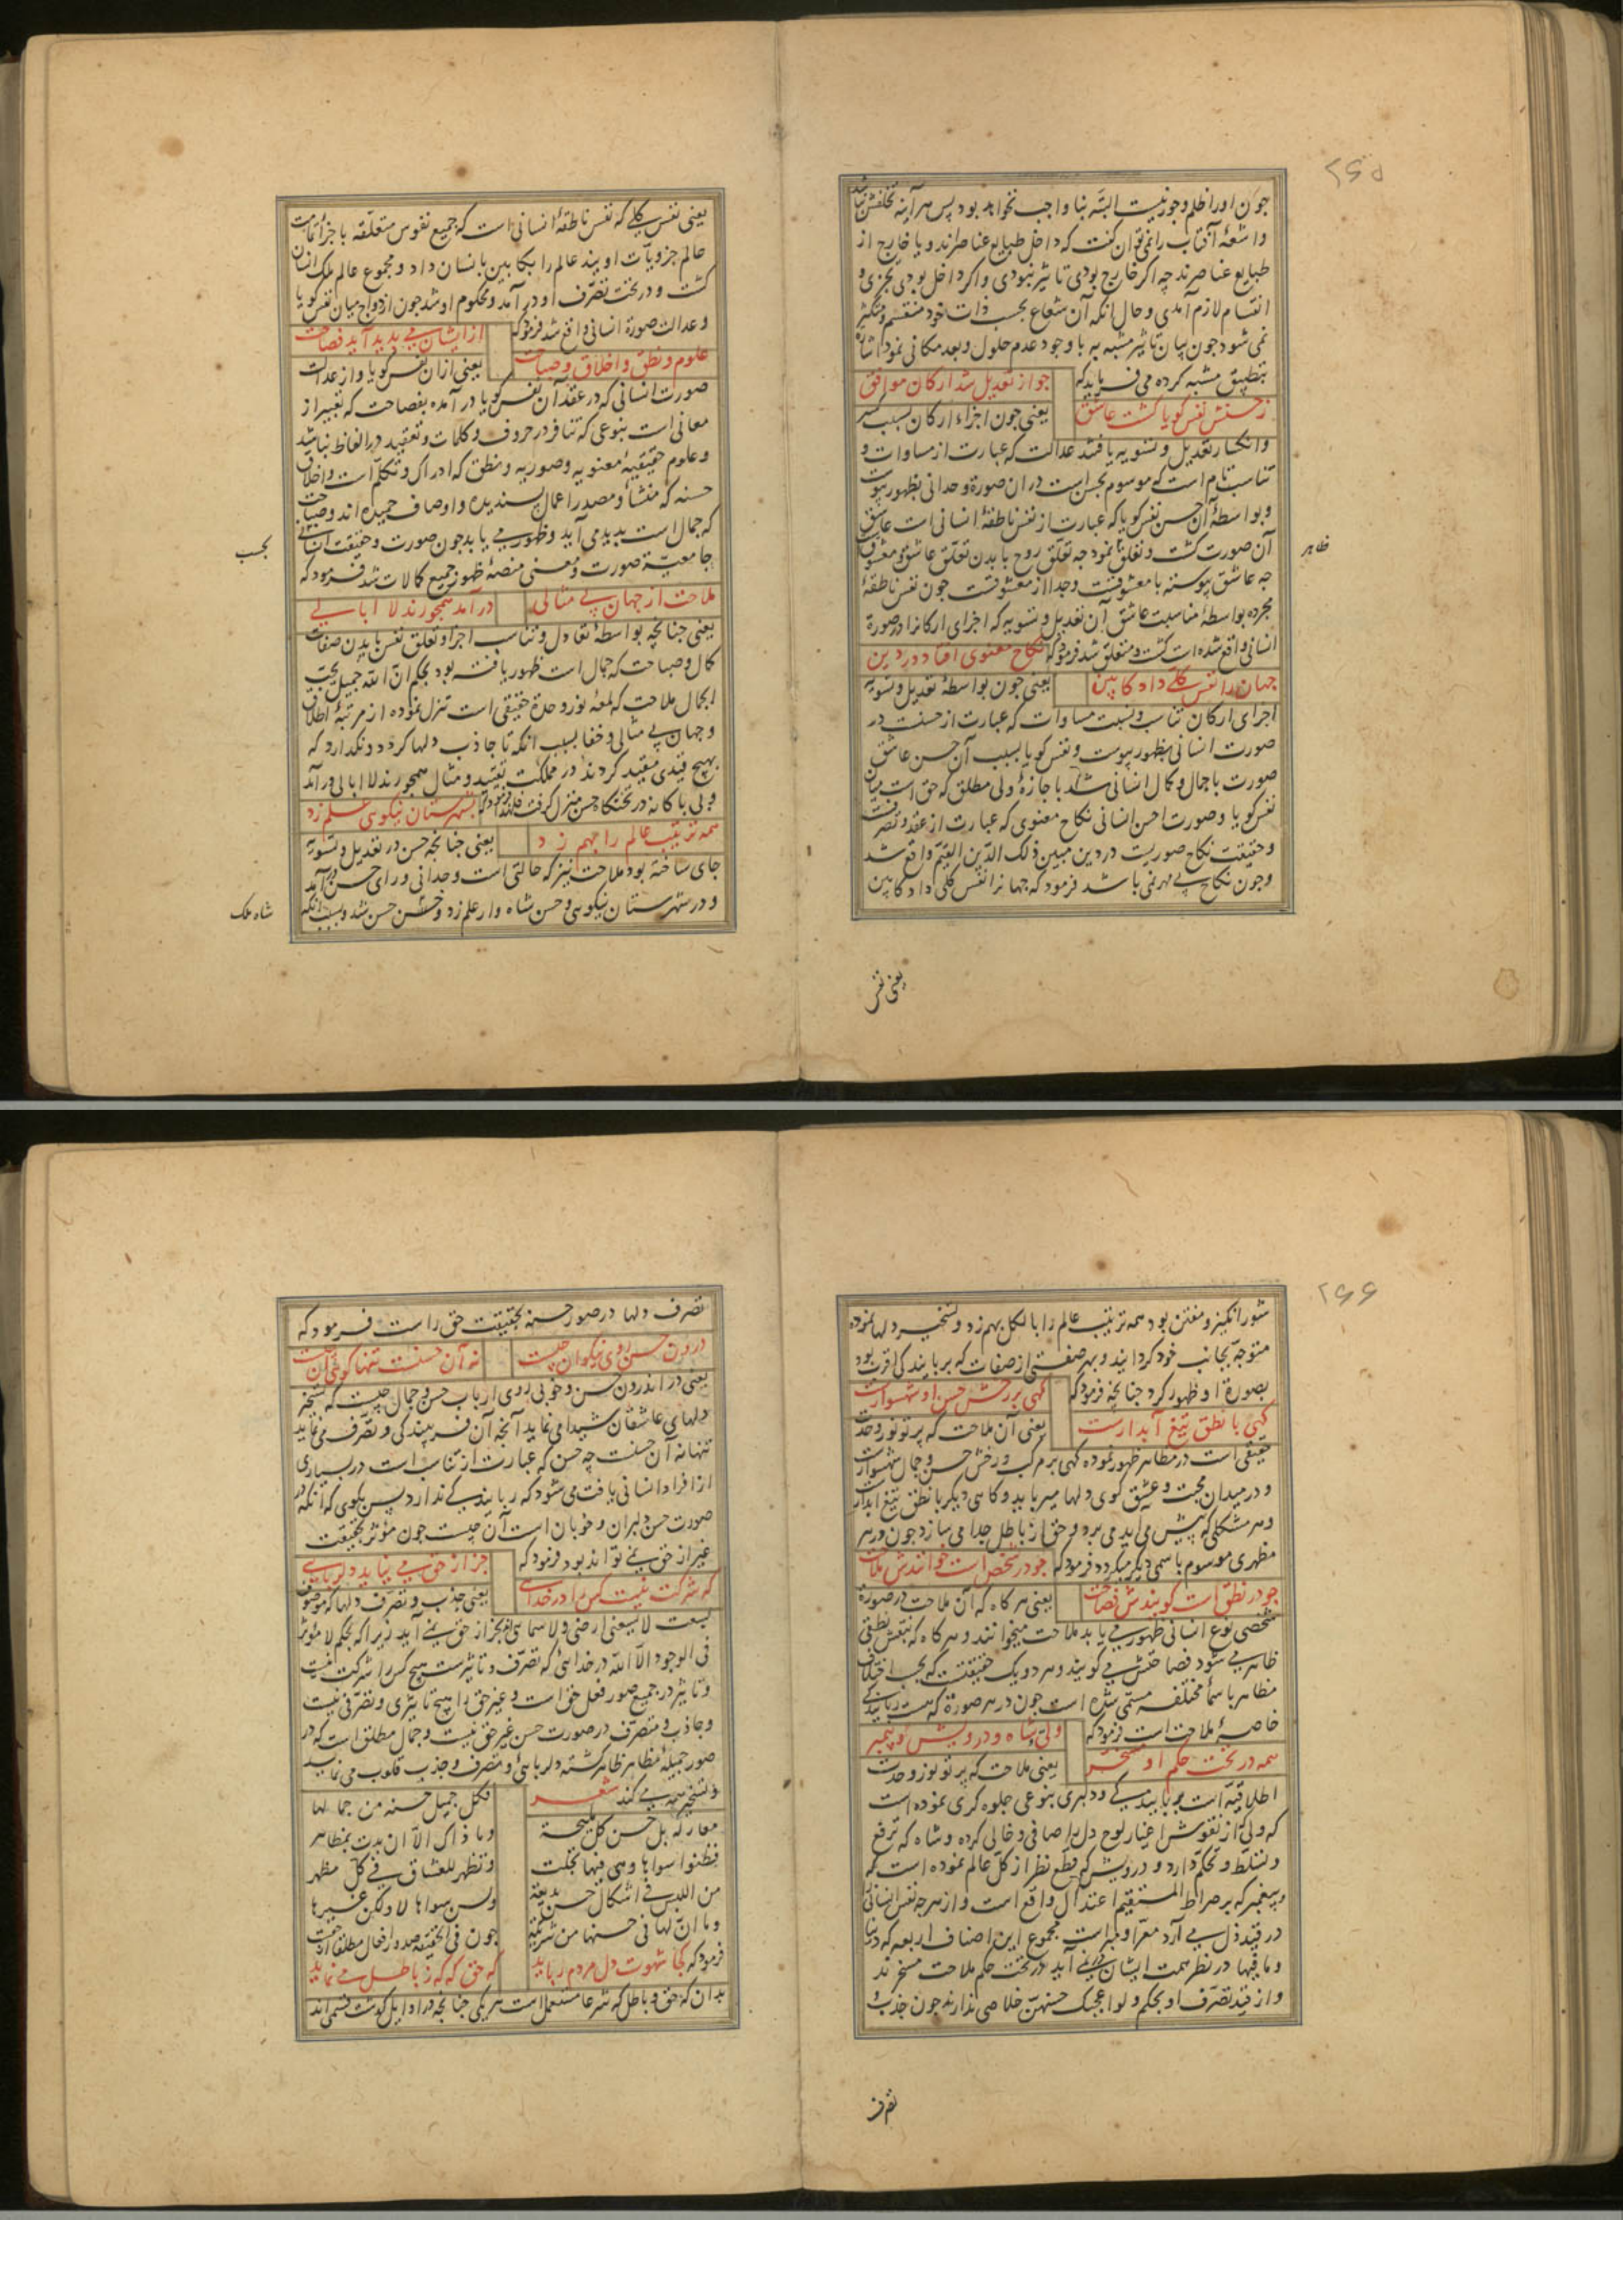 ۲۶۵
چون او را ظلم وجور نیست البته بنا واجب نخواهد بود پس هر آینه تخلفش نباشد
واشعهٔ آفتاب را نمی توان گفت که داخل طبایع عناصرند ویا خارج از
طبایع عناصرند چه اگر خارج بودی تاثیر نبودی واگر داخل بودی تجزی و
انقسام لازم آمدی وحال انکه آن شعاع بحسب ذات خود منقسم ومتکثر
نمی شود چون بیان تاثیر مشبه به با وجود عدم حلول وبعد مکانی نمود اشارة
بتطبیق مشبه کرده می فرماید که
چو از تعدیل شد ارکان موافق
ز حسنش نفس کویا کشت عاشق
یعنی چون اجزاء ارکان بسبب کسر
وانکسار تعدیل وتسویه یافتند عدالت که عبارت از مساوات و
تناسب تام است که موسوم بحسن است در ان صورة وحدانی بظهور پیوست
وبواسطهٔ آن حسن نفس کویا که عبارت از نفس ناطقهٔ انسانی است عاشق
آن صورت کشت وتعلق نمود چه تعلق روح با بدن تعلق عاشق ومعشوق
ظاهر
چه عاشق پیوسته با معشوقست وجدا از معشوقست چون نفس ناطقهٔ
مجرده بواسطهٔ مناسبت عاشق آن تعدیل وتسویه که اجزای ارکانرا در صورة
انسانی واقع شده است کشت ومتعلق شد فرمود که
نکاح معنوی افتاد در دین
جهان را نفس کلی داد کابین
یعنی چون بواسطهٔ تعدیل وتسویه
اجزای ارکان تناسب ونسبت مساوات که عبارت از حسنست در
صورت انسانی بظهور پیوست ونفس کویا بسبب آن حسن عاشق
صورت با جمال وکمال انسانی شد با جازهٔ ولی مطلق که حق است میان
نفس کویا وصورت احسن انسانی نکاح معنوی که عبارت از عقد وتصرفت
وحقیقت نکاح صوریست در دین مبین ذلک الدین القیم واقع شد
وچون نکاح بی مهر نمی باشد فرمود که جهانرا نفس کلی داد کابین
یعنی نفس
یعنی نفس کلی که نفس ناطقهٔ انسانی است که جمیع نفوس متعلقه باجزائیات
عالم جزویات اویند عالم را بکابین بانسان داد ومجموع عالم ملک انسان
کشت ودر تحت تصرف او در آمد ومحکوم او شد چون ازدواج میان نفس کویا
وعدالت صورة انسانی واقع شد فرمود که
از ایشان می پدید آید فصاحت
علوم ونطق واخلاق وصباحت
یعنی از ان نفس کویا واز عدالت
صورت انسانی که در عقد آن نفس کویا در آمده بفصاحت که تعبیر از
معانی است بنوعی که تنافر در حروف وکلمات وتعقید در الفاظ نباشد
وعلوم حقیقیهٔ معنویه وصوریه ونطق که ادراک وتکلم است واخلاق
حسنه که منشأ ومصدر اعمال پسندیده واوصاف حمیده اند وصباحت
که جمال است پدید می آید وظهور می یابد چون صورت وحقیقت انسانی
بحسب
جامعیة صورت ومعنی منصهٔ ظهور جمیع کمالات شد فرمود که
ملاحت از جهان بی مثالی
در آمد همچو رند لا ابالی
یعنی چنانچه بواسطهٔ تعادل وتناسب اجزا وتعلق نفس با بدن صفات
کمال وصباحت که جمال است ظهور یافته بود بحکم ان الله جمیل یحب
الجمال ملاحت که لمعهٔ نور وحدة حقیقی است تنزل نموده از مرتبهٔ اطلاق
وجهان بی مثالی وخفا بسبب انکه تا جاذب دلها کردد ونکذارد که
بهیچ قیدی مقید کردند در مملکت تقیید ومثال همچو رند لا ابالی در آمد
وبی باکانه در تختکاه حسن منزل کرفت فلهذا فرمود که
بشهرستان نیکویی علم زد
همه ترتیب عالم را بهم زد
یعنی چنانچه حسن در تعدیل وتسویه
جای ساخته بود ملاحت نیز که حالتی است وحدانی ورای حسن در آمد
ودر شهرستان نیکویی وحسن شاه وار علم زد وجنس حسن شد وبسبب انکه
شاه ملک
۲۶۶
شور انکیز ومفتن بود همه ترتیب عالم را بالکل بهم زد وتسخیر دلها نموده
متوجه بجانب خود کردانید وبهر صفتی از صفات که بربایندکی اقرب بود
بصورة او ظهور کرد چنانچه فرمود که
کهی بر رخش حسن او شهسوارست
کهی با نطق تیغ آبدارست
یعنی آن ملاحت که پرتو نور وحدت
حقیقی است در مظاهر ظهور نموده کهی بر مرکب ورخش حسن وجمال شهسوارست
ودر میدان محبت وعشق کوی دلها میرباید وکاهی دیکر با نطق تیغ ابدار
وهر مشکلی که پیش می آید می برد وحق از باطل جدا می سازد چون در هر
مظهری موسوم باسمی دیکر میکردد فرمود که
چو در شخص است خوانندش ملاحت
چو در نطق است کویندش فصاحت
یعنی هر کاه که آن ملاحت در صورة
شخصی نوع انسانی ظهور می یابد ملاحت میخوانند وهر کاه که بنعت نطقی
ظاهر می شود فصاحتش می کویند وهر دو یک حقیقتست که بحسب اختلاف
مظاهر باسماء مختلفه مسمی شده است چون در هر صورة که هست ربایندکی
خاصیهٔ ملاحت است فرمود که
ولی وشاه ودرویش وپیمبر
همه در تحت حکم او مسخر
یعنی ملاحت که پرتو نور وحدت
اطلاقیه است بربایندکی ودلبری بنوعی جلوه کری نموده است
که ولی که از نقوش اغیار لوح دل را صافی وخالی کرده وشاه که ترفع
وتسلط وتحکم دارد ودرویش که قطع نظر از کل عالم نموده است
وپیغمبر که بر صراط المستقیم اعتدال واقع است واز هرچه نفس انسانی را
در قید ذل می آرد معرا ومبراست مجموع این اصناف اربعه که دنیا
وما فیها در نظر همت ایشان در نمی آید در تحت حکم ملاحت مسخرند
واز قید تصرف او بحکم ولو اعجبک حسنهن خلاصی ندارند چون جذب و
تصرف
تصرف دلها در صور حسنه بحقیقت حق راست فرمود که
درون حسن روی نیکوان چیست
نه آن حسنست تنها کوی آن چیست
یعنی در اندرون حسن وخوبی روی ارباب حسن وجمال چیست که تسخیر
دلهای عاشقان شیدا می نماید آنچه آن فریبندکی وتصرف می نماید
تنها نه آن حسنست چه حسن که عبارت از تناسب است در بسیاری
از افراد انسانی یافت می شود که ربایندکی ندارد پس بکوی که انکه در
صورت حسن دلبران وخوبان است آن چیست چون مؤثر بحقیقت
غیر از حق نمی تواند بود فرمود که
جز از حق می نیاید دلربایی
که شرکت نیست کس را در خدایی
یعنی جذب وتصرف دلها که موصوف
بسعت لا یسعنی ارضی ولا سمائی اند بجز از حق نمی آید زیرا که بحکم لا مؤثر
فی الوجود الا الله در خدائی که تصرف وتاثیرست هیچ کس را شرکت نیست
وتاثیر در جمیع صور فعل حق است وغیر حق را هیچ تاثیری وتصرفی نیست
وجاذب ومتصرف در صورت حسن غیر حق نیست وجمال مطلق است که در
صور جمیلهٔ مظاهر ظاهر کشته دلربائی وتصرف وجذب قلوب می نماید
وتسخیر همه می کند شعر
فکل جمیل حسنه من جمالها
معار له بل حسن کل ملیحة
وما ذاک الا ان بدت بمظاهر
فظنوا سواها وهی فیها تجلت
وتظهر للعشاق فی کل مظهر
من اللبس فی اشکال حسن بدیعة
ولسن سواها لا ولکن غیرها
وما ان لها فی حسنها من شریکة
چون فی الحقیقه صدور افعال مطلقا از حقست
فرمود که
کجا شهوت دل مردم رباید
که حق که که ز باطل می نماید
بدان که حق وباطل که شرعا مستعمل است هر یکی چنانچه در اوایل کذشت قسمی اند